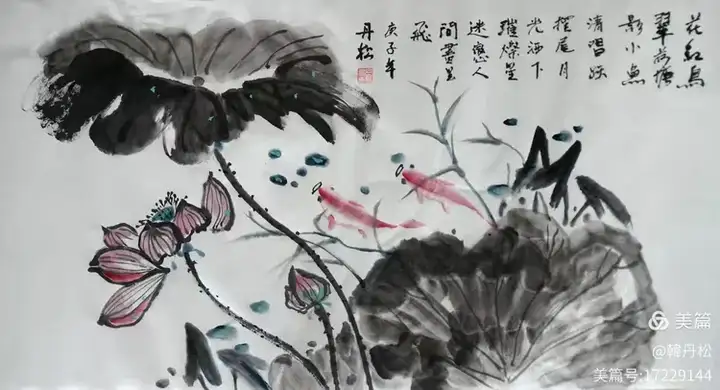 花红鸟
翠荷塘
影小鱼
清唱跃
摆尾月
光洒下
璀燦星
迷戀人
間畫里
飛
庚子年
丹松
美篇
@韓丹松
美篇号:17229144